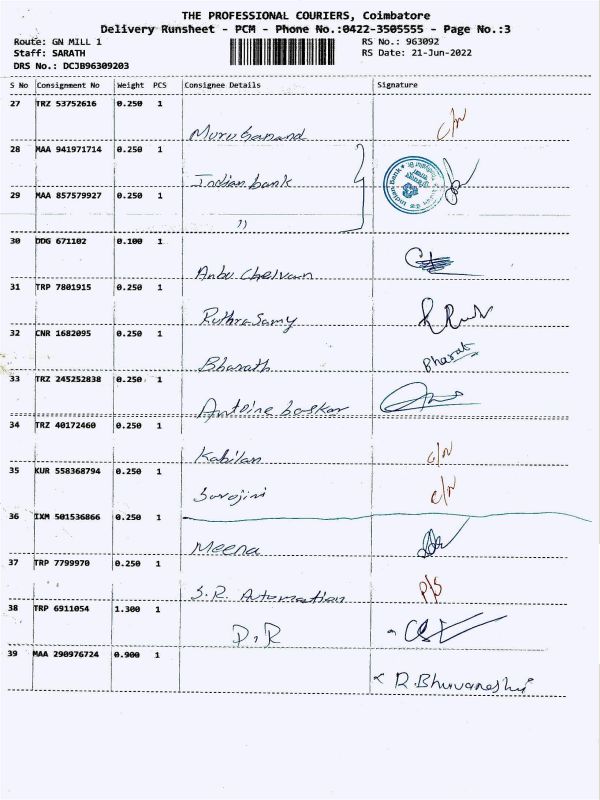 THE PROFESSIONAL COURIERS, Coimbatore
Delivery Runsheet - PCM - Phone No.:0422-3505555 - Page No.:3
Route: GN MILL 1 RS No.: 963092
Staff: SARATH RS Date: 21-Jun-2022
DRS No.: DCJB96309203
S No Consignment No Weight PCS Consignee Details Signature
27 TRZ 53752616 0.250 1
Muruganand c/n
28 MAA 941971714 0.250 1
Indian bank
29 MAA 857579927 0.250 1
11
30 DDG 671102 0.100 1
Anbu Chelvan
31 TRP 7801915 0.250 1
Ruthrasamy
32 CNR 1682095 0.250 1
Bharath Bharat
33 TRZ 245252838 0.250 1
Antoine baskar
34 TRZ 40172460 0.250 1
Kabilan c/n
35 KUR 558368794 0.250 1
Sarojini c/n
36 IXM 501536866 0.250 1
Meena
37 TRP 7799970 0.250 1
S.R. Automation P/S
38 TRP 6911054 1.300 1
D.R
39 MAA 290976724 0.900 1
R.Bhuvaneshwi